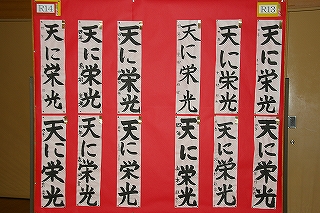 R14
R13
天に栄光
天に栄光
天に栄光
天に栄光
天に栄光
天に栄光
天に栄光
天に栄光
天に栄光
天に栄光
天に栄光
天に栄光